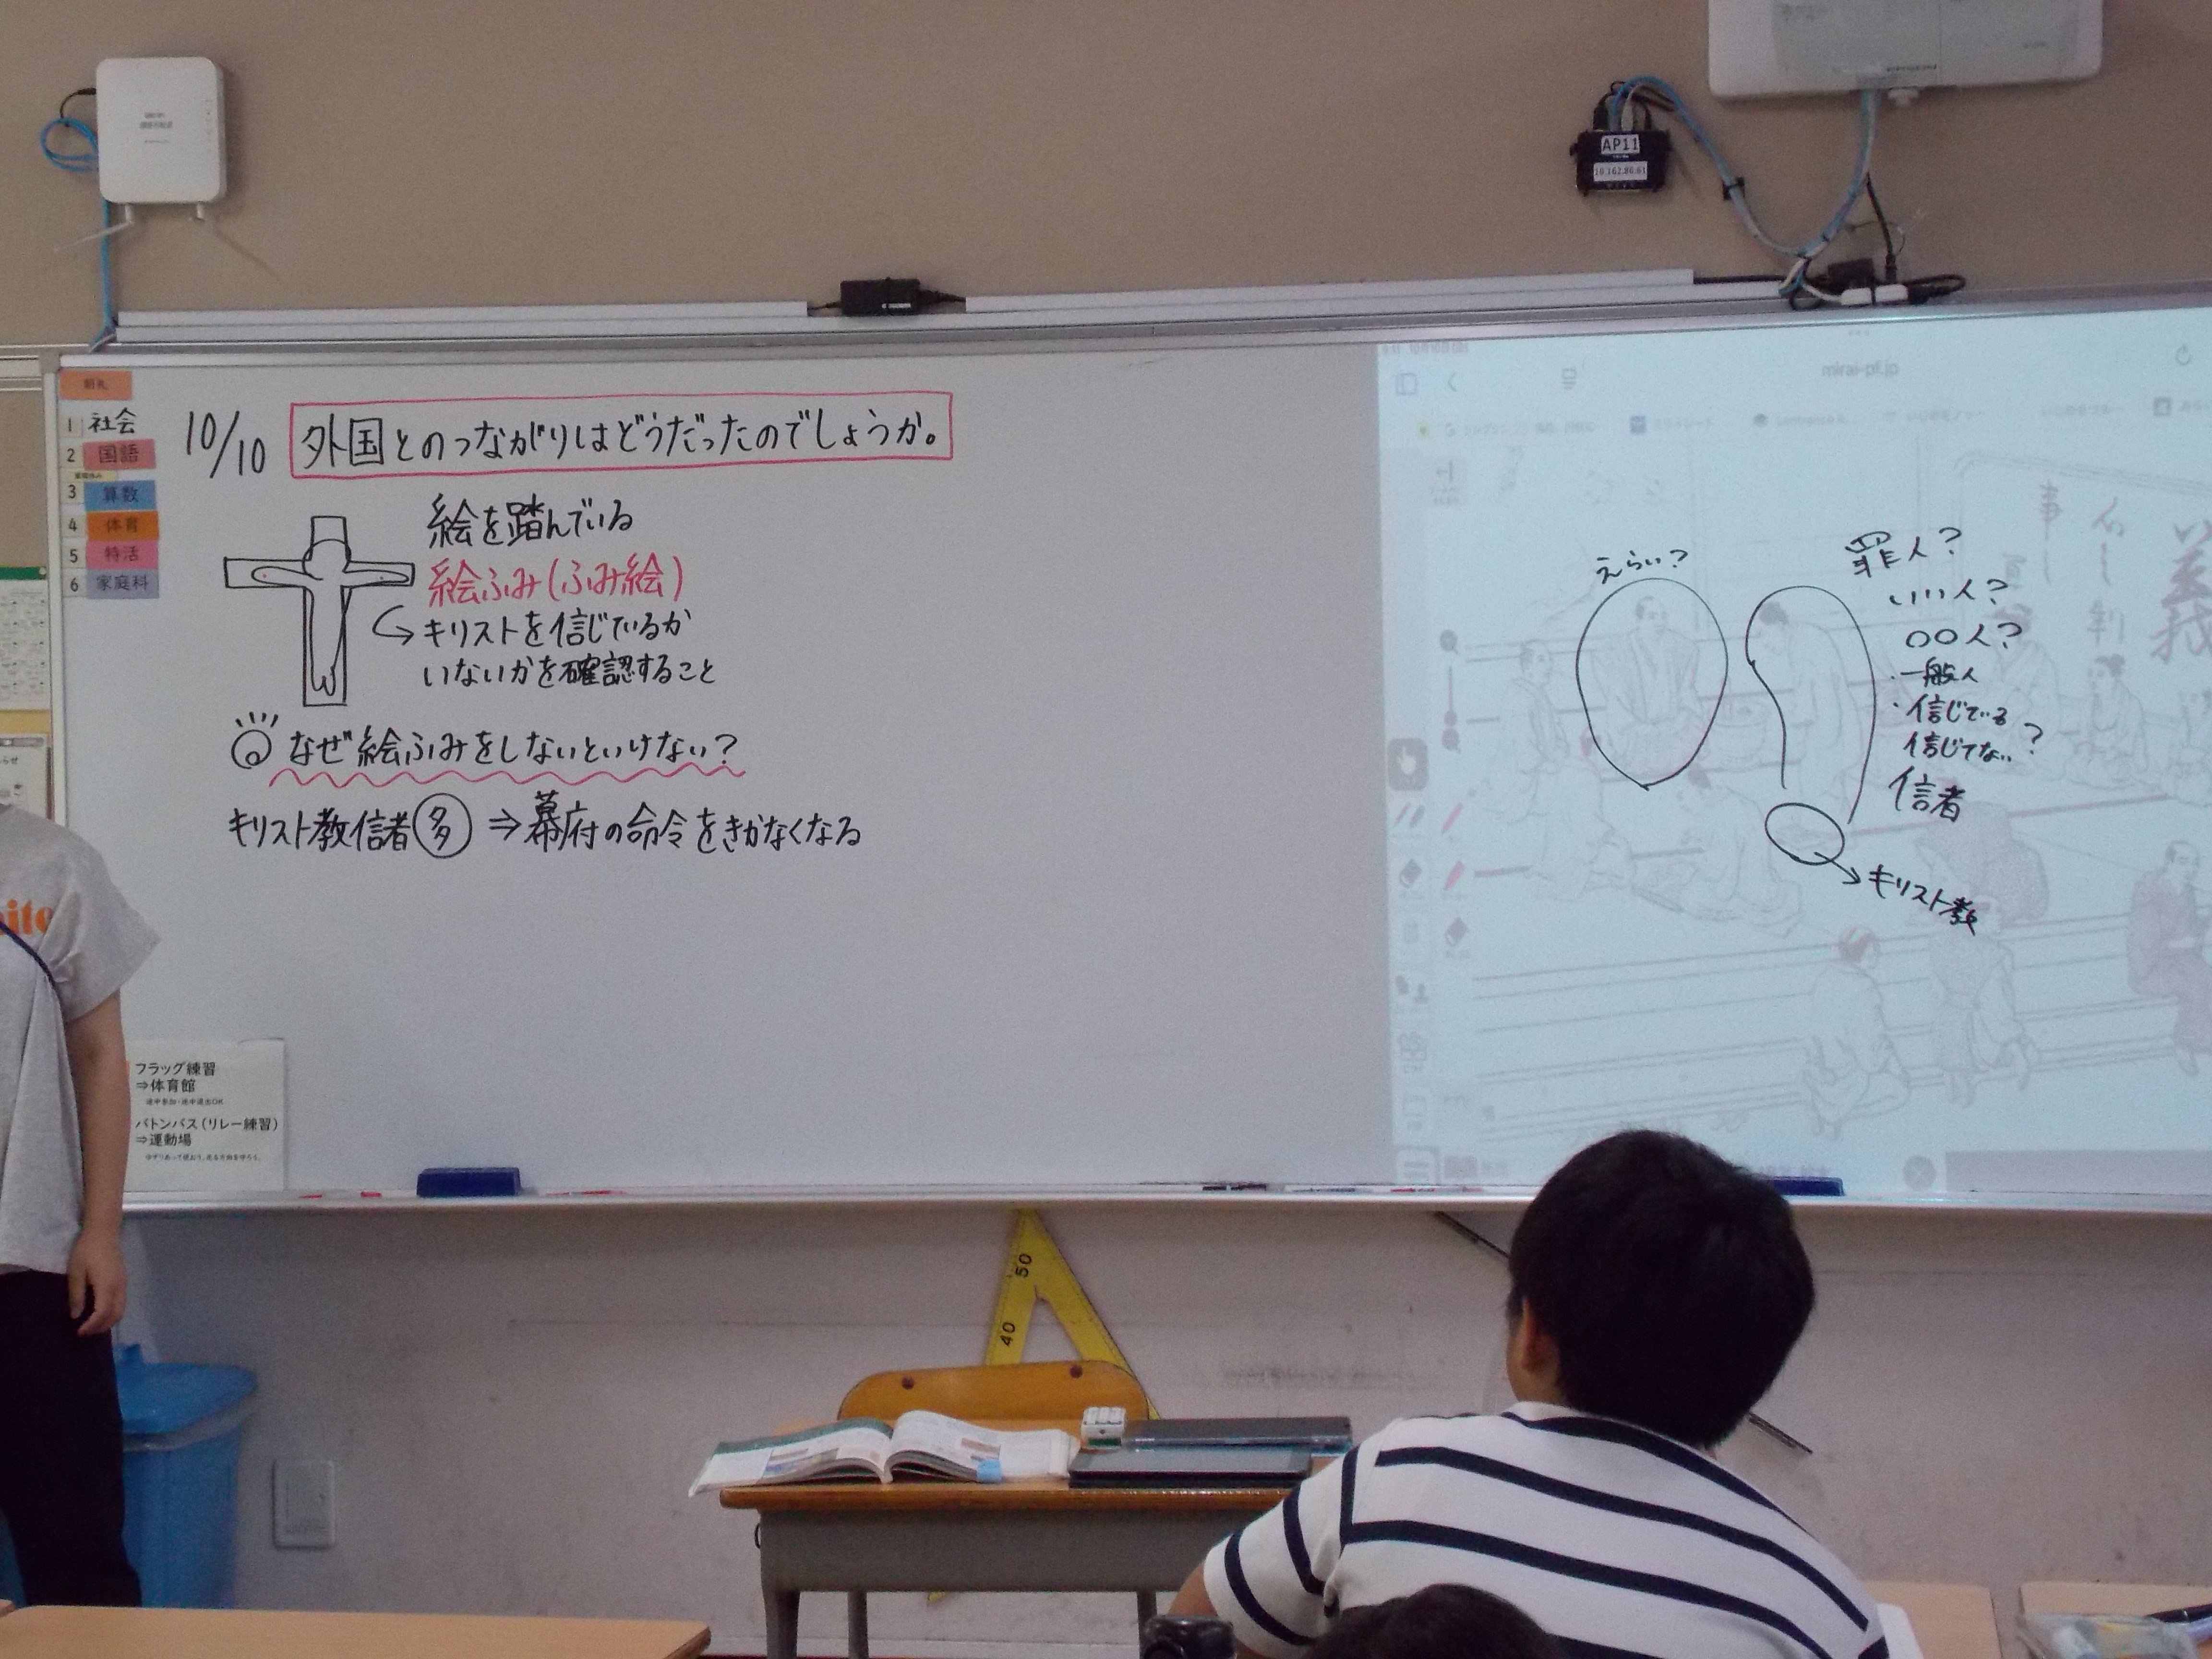 AP11
10.162.86.61
朝礼
1 社会
2 国語
3 算数
4 体育
5 特活
6 家庭科
10/10
外国とのつながりはどうだったのでしょうか。
絵を踏んでいる
絵ふみ(ふみ絵)
キリストを信じているか
いないかを確認すること
なぜ絵ふみをしないといけない?
キリスト教信者 多 ⇒ 幕府の命令をきかなくなる
mirai-pf.jp
えらい?
罪人?
いい人?
〇〇人?
・一般人
・信じてる
信じてない?
信者
キリスト教
フラッグ練習
⇒体育館
途中参加・途中退出OK
バトンパス(リレー練習)
⇒運動場
50
40